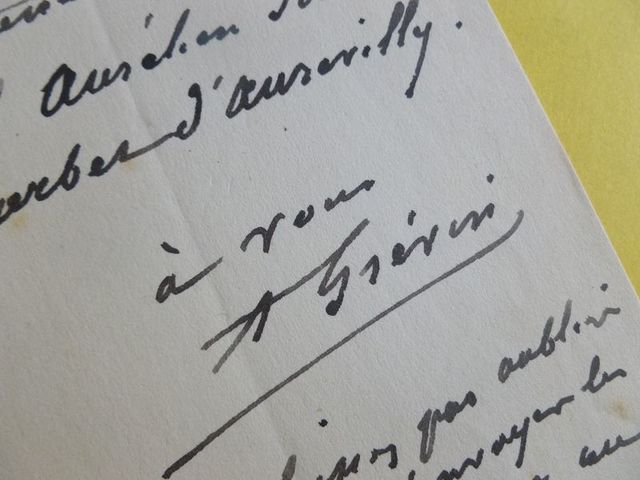 Aurélien
d'Aurevilly.
à vous
A Grévin
pas oublier
envoyer les
au